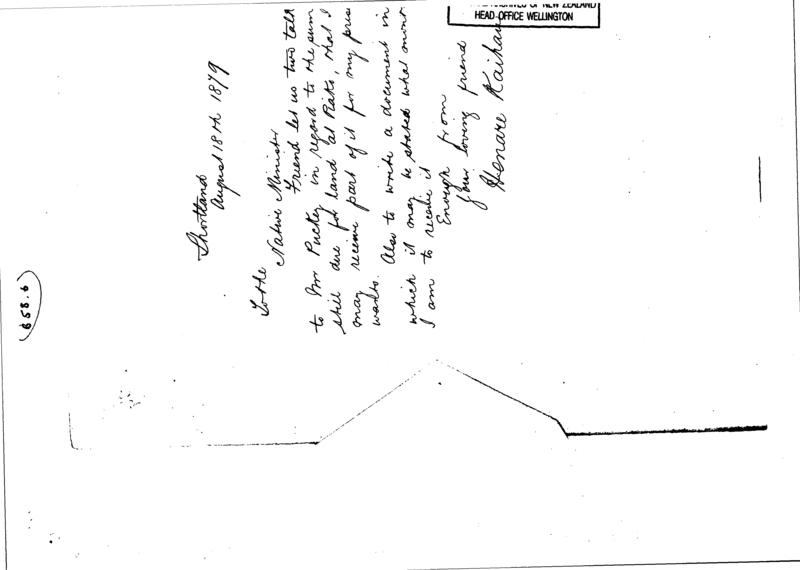 NATIONAL ARCHIVES OF NEW ZEALAND
HEAD OFFICE WELLINGTON
658.6
Shortland
August 18th 1879
To the
Native Minister
Friend let us two talk
to Mr Puckey in regard to the sum
still due for land at Piako, that I
may receive part of it for my
wants. Also to write a document in
which it may be stated what
I am to receive it
Enough from
your loving friend
Henare